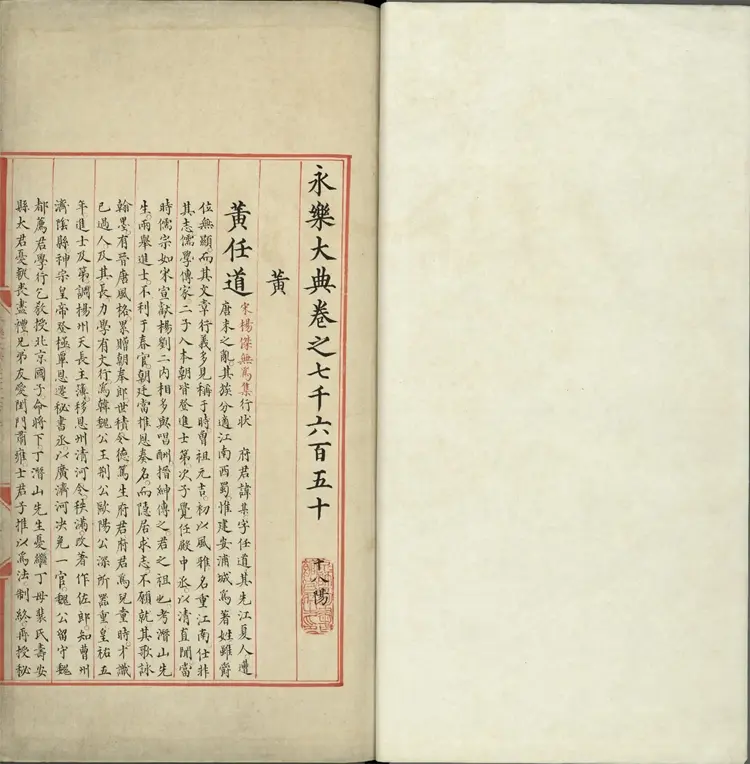 永樂大典卷之七千六百五十 十八陽
黃
黃任道 宋楊傑無為集行狀 府君諱某字任道其先江夏人遭
唐末之亂其族分適江南西蜀惟建安浦城為著姓雖爵
位無顯而其文章行義多見稱于時曾祖元吉初以風雅名重江南仕非
其志儒學傳家二子入本朝皆登進士第次子覺任殿中丞以清直聞當
時儒宗如宋宣獻楊劉二內相多與唱酬搢紳傳之君之祖也考潛山先
生兩舉進士不利于春官朝廷當推恩奏名而隱居求志不願就其歌詠
翰墨有晉唐風格累贈朝奉郎世積令德篤生府君府君為兒童時才識
已過人及其長力學有文行為韓魏公王荊公歐陽公深所器重皇祐五
年進士及第調楊州天長主簿移恩州清河令秩滿改著作佐郎知曹州
濟陰縣神宗皇帝登極覃恩遷秘書丞以廣濟河決免一官魏公留守魏
都薦君學行乞教授北京國子命將下丁潛山先生憂繼丁母裴氏壽安
縣太君憂執喪盡禮兄弟友愛閨門肅雍士君子推以為法制終再授秘